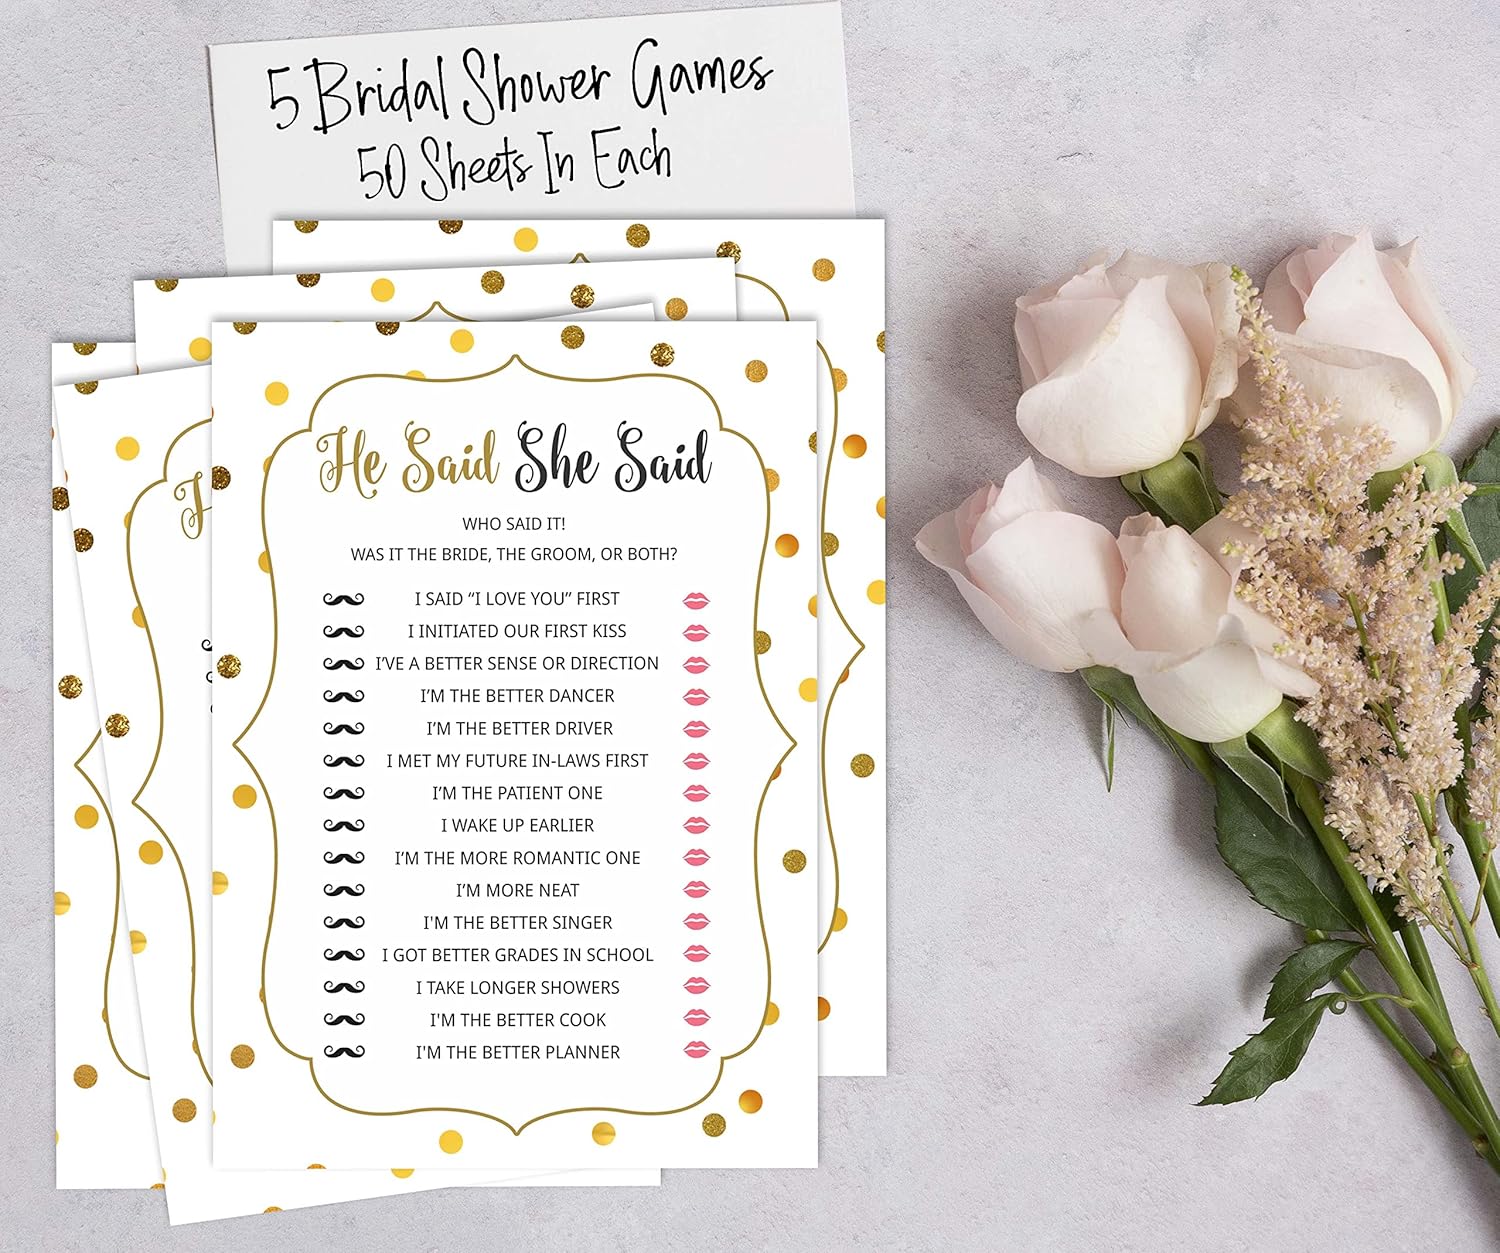 5 Bridal Shower Games
50 Sheets In Each
He Said She Said
WHO SAID IT!
WAS IT THE BRIDE, THE GROOM, OR BOTH?
I SAID “I LOVE YOU” FIRST
I INITIATED OUR FIRST KISS
I’VE A BETTER SENSE OR DIRECTION
I’M THE BETTER DANCER
I’M THE BETTER DRIVER
I MET MY FUTURE IN-LAWS FIRST
I’M THE PATIENT ONE
I WAKE UP EARLIER
I’M THE MORE ROMANTIC ONE
I’M MORE NEAT
I'M THE BETTER SINGER
I GOT BETTER GRADES IN SCHOOL
I TAKE LONGER SHOWERS
I'M THE BETTER COOK
I'M THE BETTER PLANNER